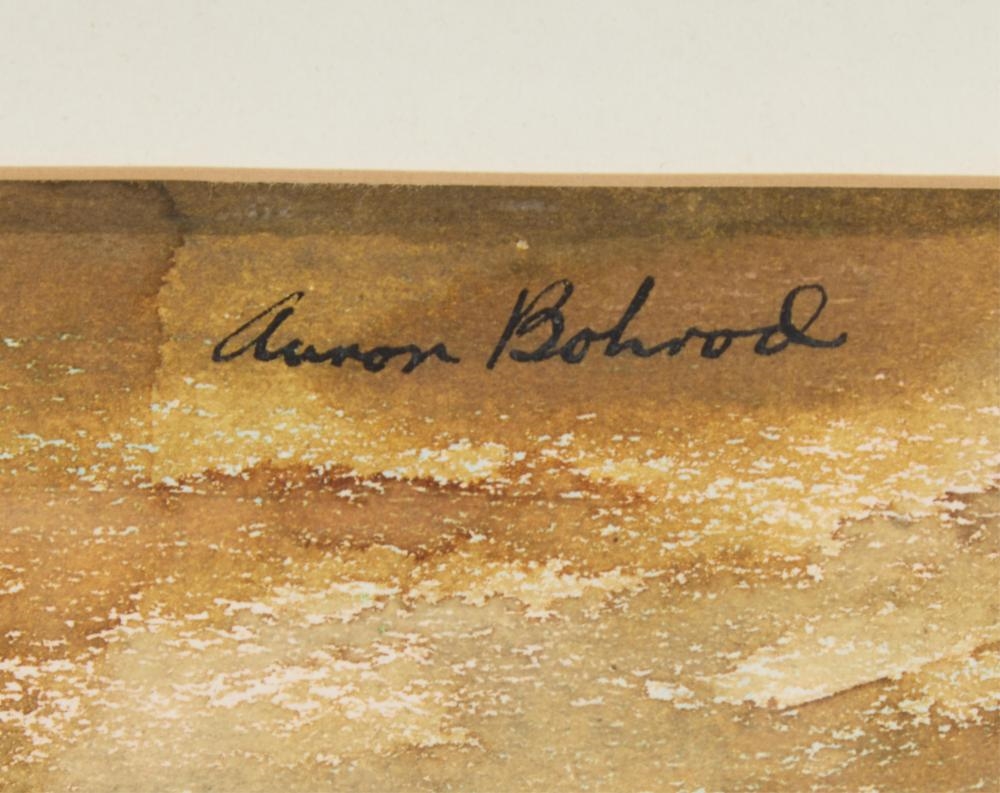 Aaron Bohrod